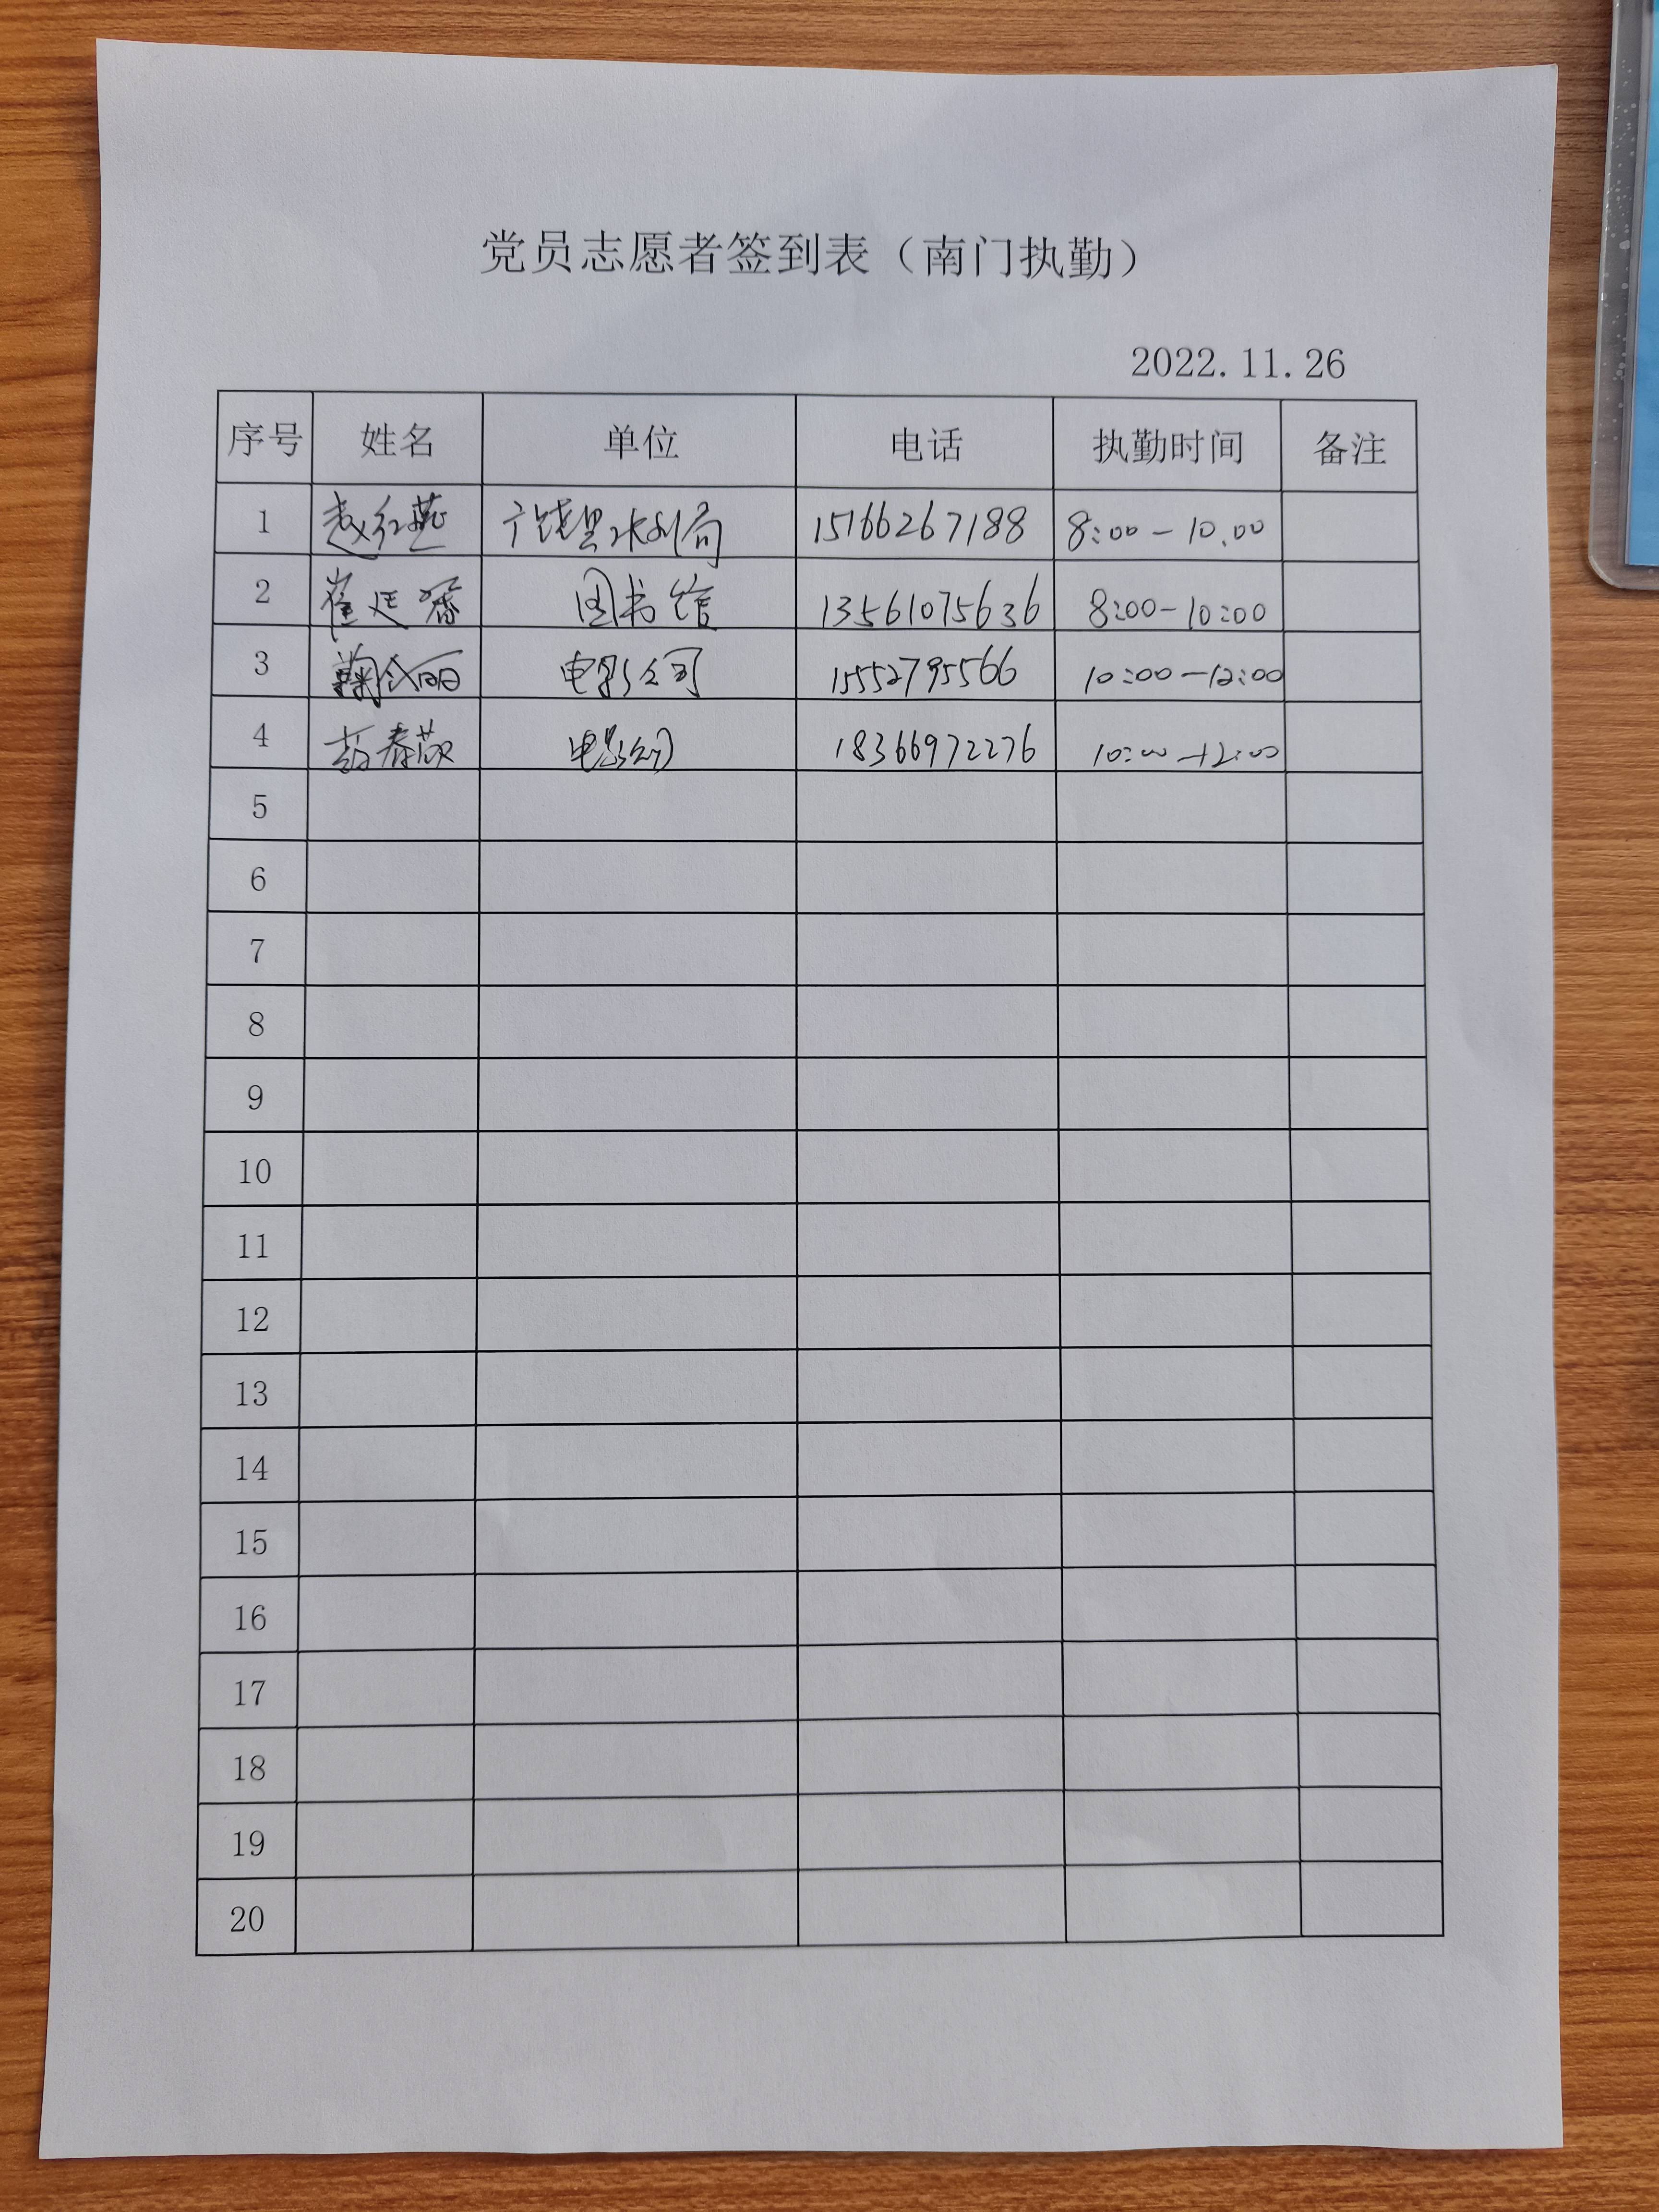 党员志愿者签到表（南门执勤）
2022.11.26
序号 姓名 单位 电话 执勤时间 备注
1 赵红燕 广饶县水利局 15166267188 8:00-10.00
2 崔廷 图书馆 13561075636 8:00-10:00
3 丽 电影公司 15552795566 10:00-12:00
4 赵春 电影公司 18366972276 10:00-12:00
5
6
7
8
9
10
11
12
13
14
15
16
17
18
19
20